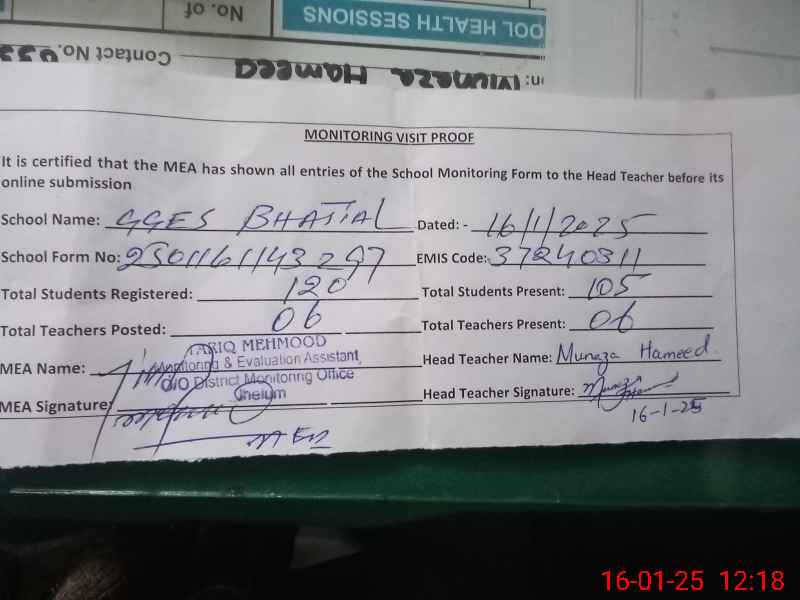 No. of
OOL HEALTH SESSIONS
Contact No.
n: Munaza Hameed
MONITORING VISIT PROOF
It is certified that the MEA has shown all entries of the School Monitoring Form to the Head Teacher before its
online submission
School Name: GGES BHATIAL Dated: - 16/1/2025
School Form No: 2501161143297 EMIS Code: 37240311
Total Students Registered: 120 Total Students Present: 105
Total Teachers Posted: 06 Total Teachers Present: 06
TARIQ MEHMOOD
MEA Name: Monitoring & Evaluation Assistant Head Teacher Name: Munaza Hameed.
O/O District Monitoring Office
Jhelum
MEA Signature: Head Teacher Signature:
16-1-25
16-01-25 12:18